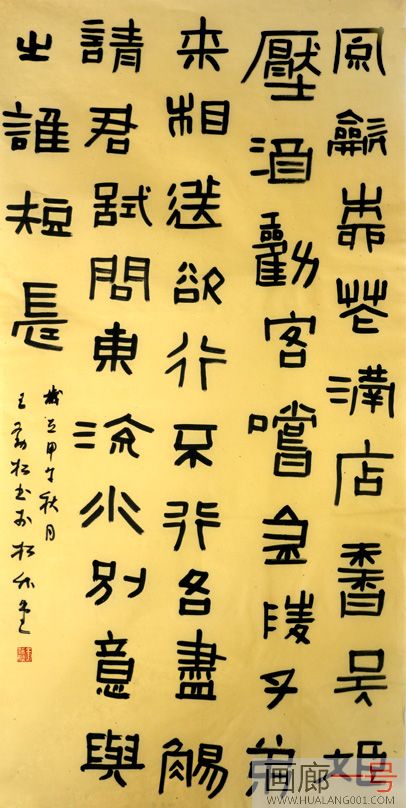 風龡桺花滿店香吳姬
壓酒勸客嚐金陵子弟
来相送欲行不行各盡觴
請君試問東流水別意與
之誰短長
歲在甲午秋月
画廊一号
WWW.HUALANG001.COM